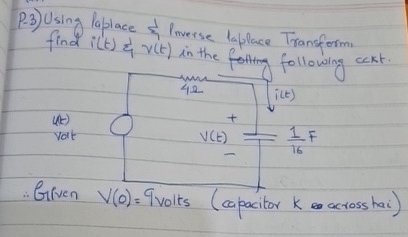 P.3) Using laplace & Inverse laplace Transform,
find i(t) & v(t) in the following cckt.
4Ω
i(t)
u(t)
volt
+
V(t)
1/16 F
-
∴ Given V(0) = 9 volts (capacitor k across hai)